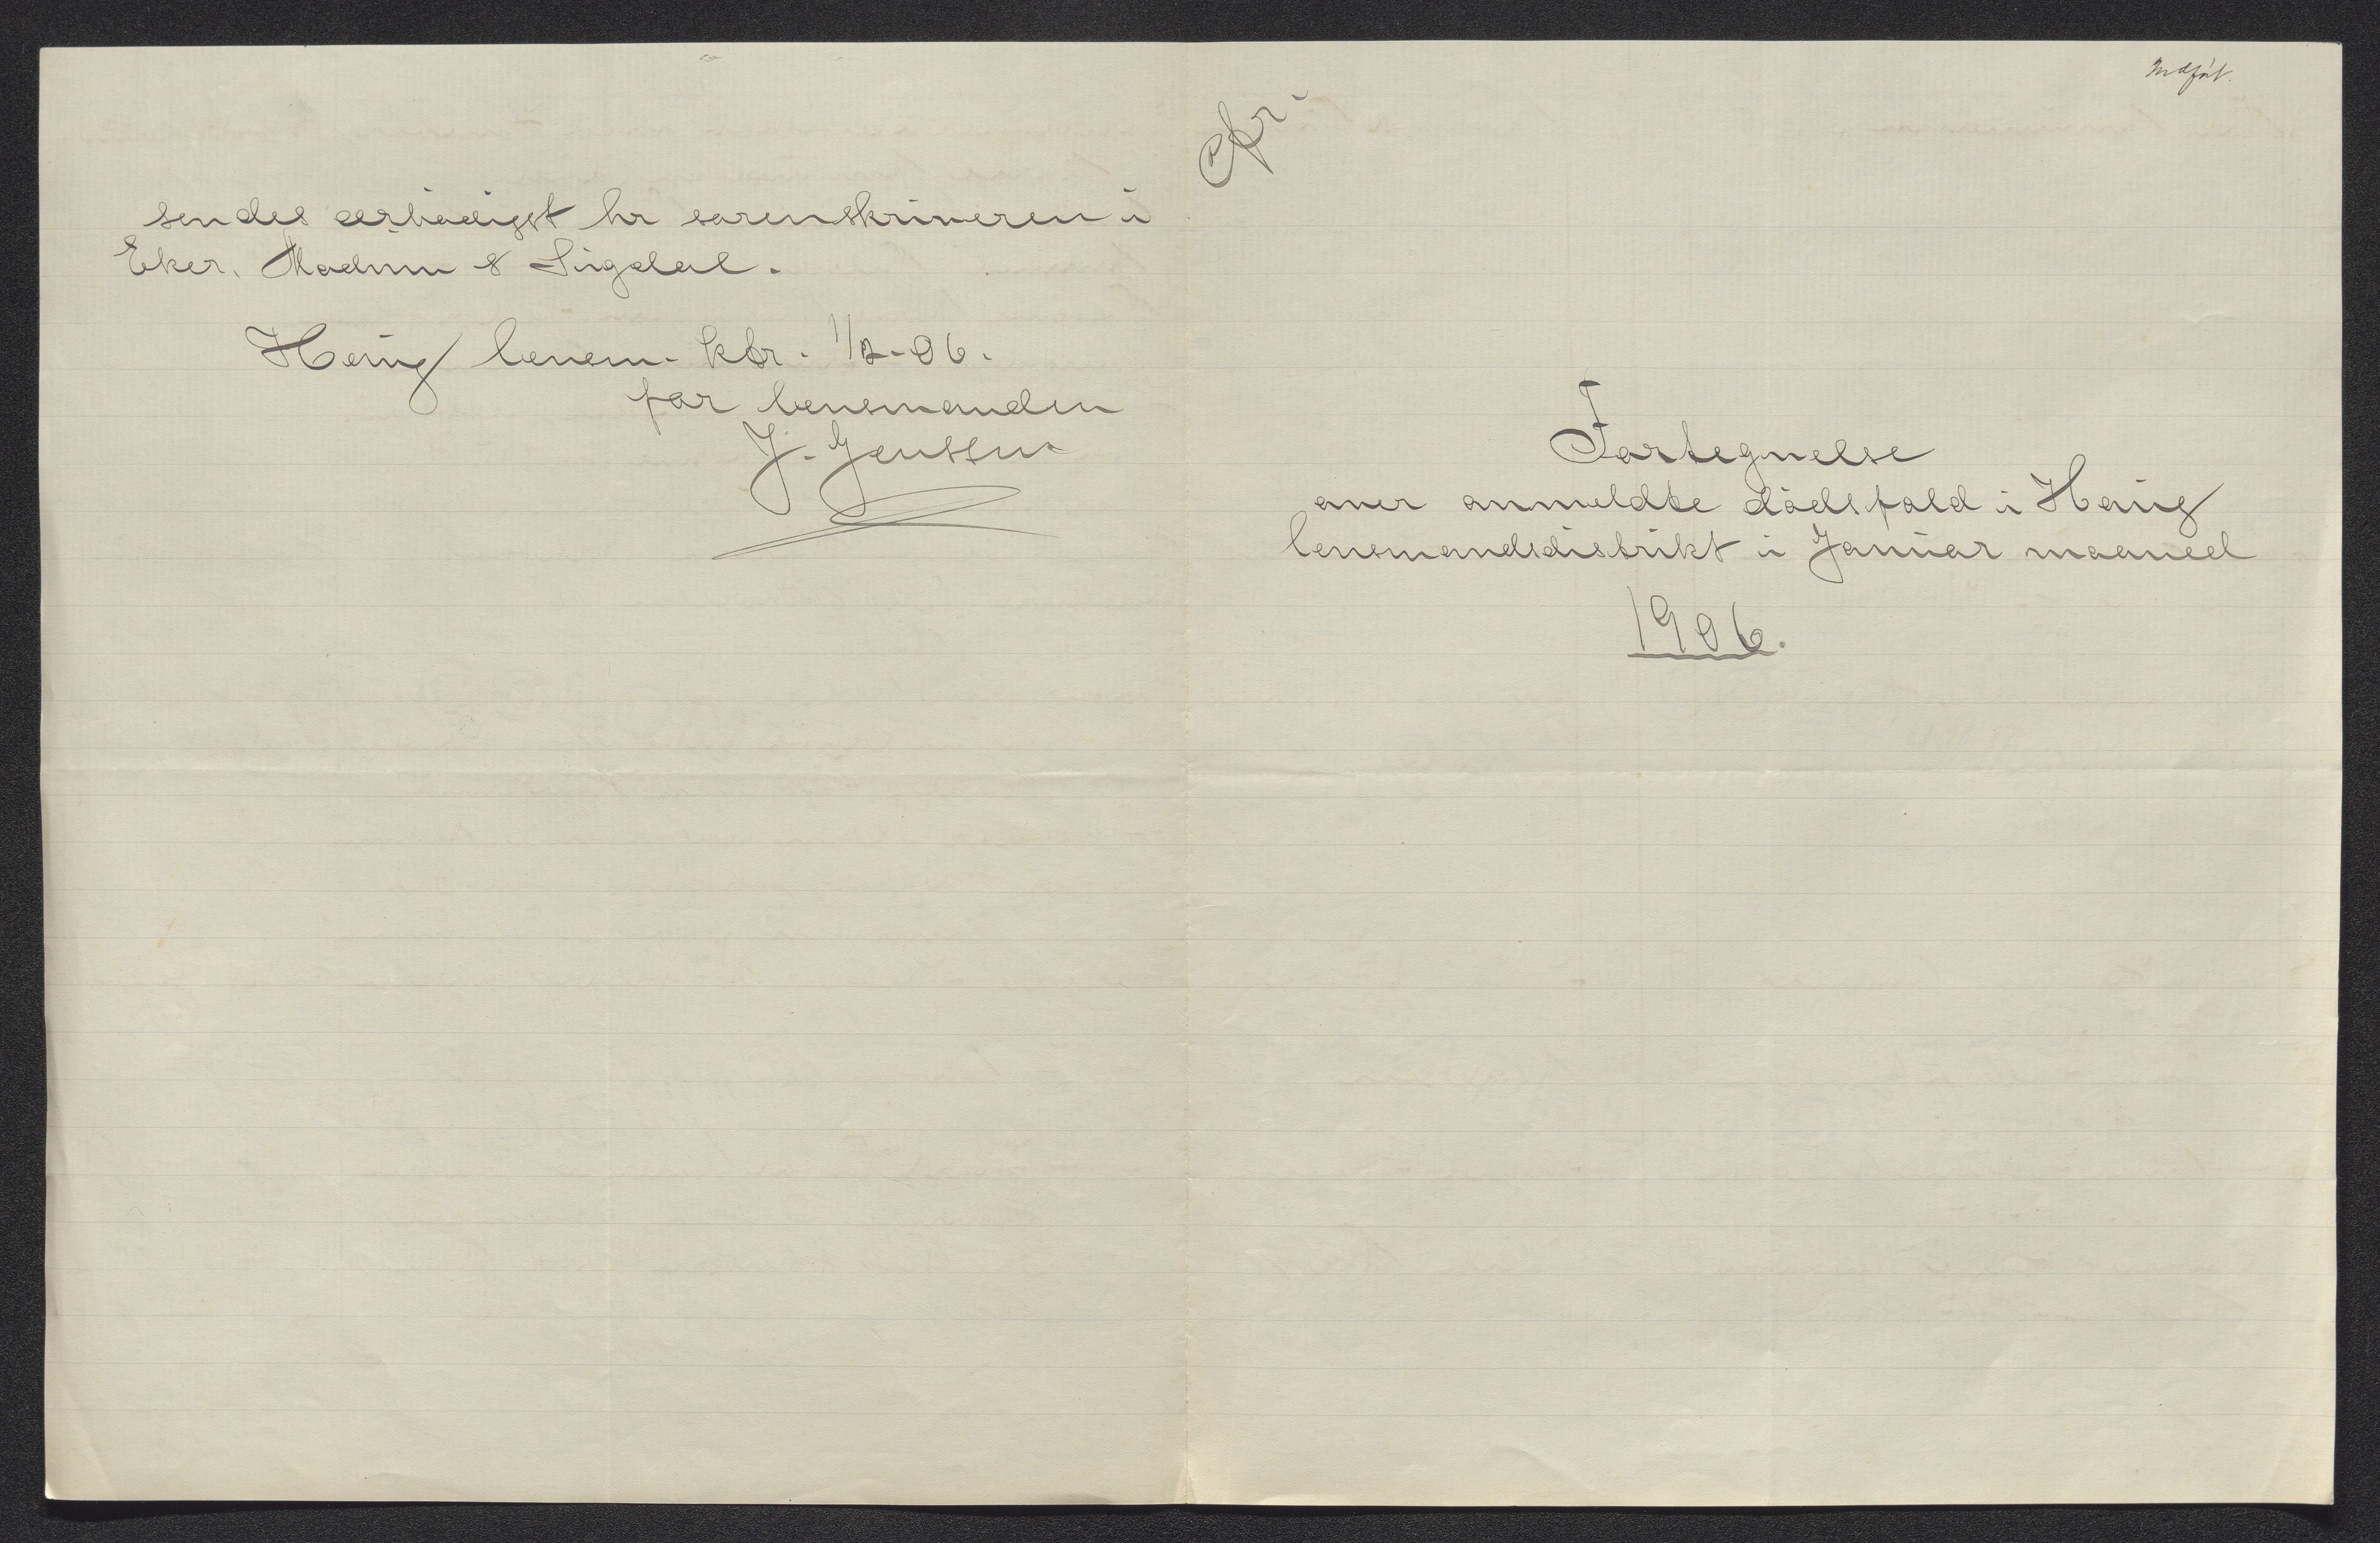 sendes ærbødigst hr sorenskriveren i
Eker, Modum & Sigdal.
Houg lensm. ktr. 1/2-06.
for lensmanden
J. Jenssen
Indført.
Fortegnelse
over anmeldte dødsfald i Houg
lensmandsdistrikt i Januar maaned
1906.